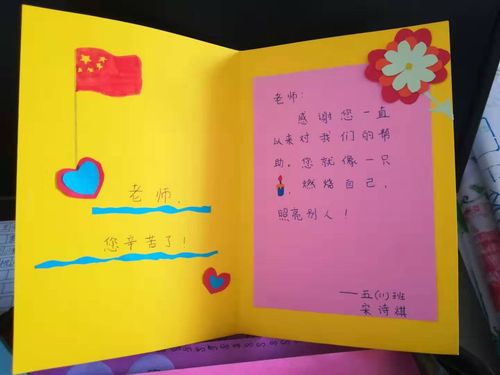 老师，
您辛苦了！
老师：
感谢您一直
以来对我们的帮
助。您就像一只
，燃烧自己，
照亮别人！
——五(11)班
宋诗棋